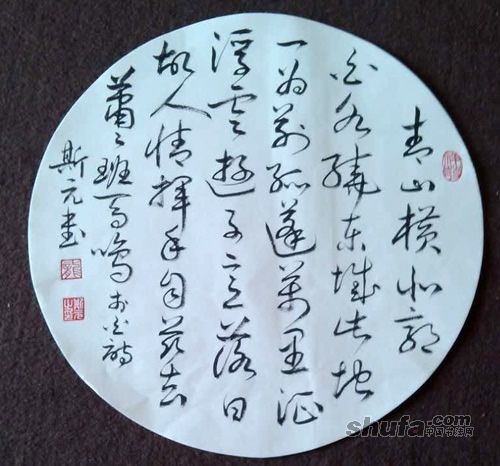 青山横北郭
白水繞东城此地
一为别孤蓬萬里征
浮雲遊子意落日
故人情揮手自兹去
蕭〻班马鳴李白诗
斯元书
shufa.com
中国书法网